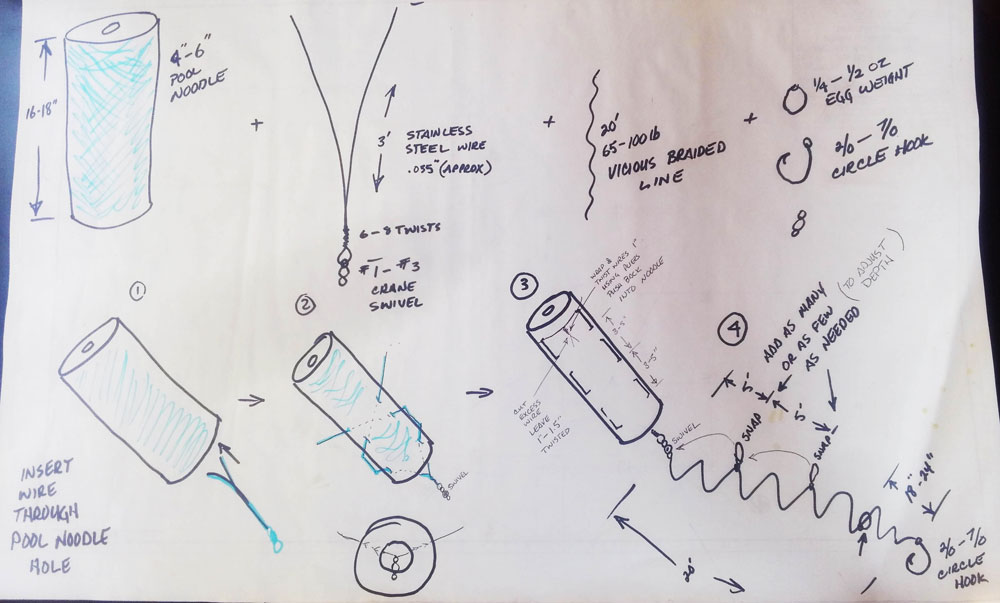 16-18"
4"-6"
POOL
NOODLE
+
3'
STAINLESS
STEEL WIRE
.035" (APPROX)
6-8 TWISTS
#1-#3
CRANE
SWIVEL
+
20'
65-100lb
VICIOUS BRAIDED
LINE
+
1/4 - 1/2 OZ
EGG WEIGHT
2/0 - 7/0
CIRCLE HOOK
1
INSERT
WIRE
THROUGH
POOL NOODLE
HOLE
2
SWIVEL
3
WRAP &
TWIST WIRES 1"
USING PLIERS
PUSH BACK
INTO NOODLE
3-5"
3-5"
CUT
EXCESS
WIRE
LEAVE
1"-1.5"
TWISTED
SWIVEL
4
ADD AS MANY
OR AS FEW
AS NEEDED
(TO ADJUST
DEPTH)
5'
5'
SNAP
SNAP
18"-24"
20'
2/0 - 7/0
CIRCLE
HOOK